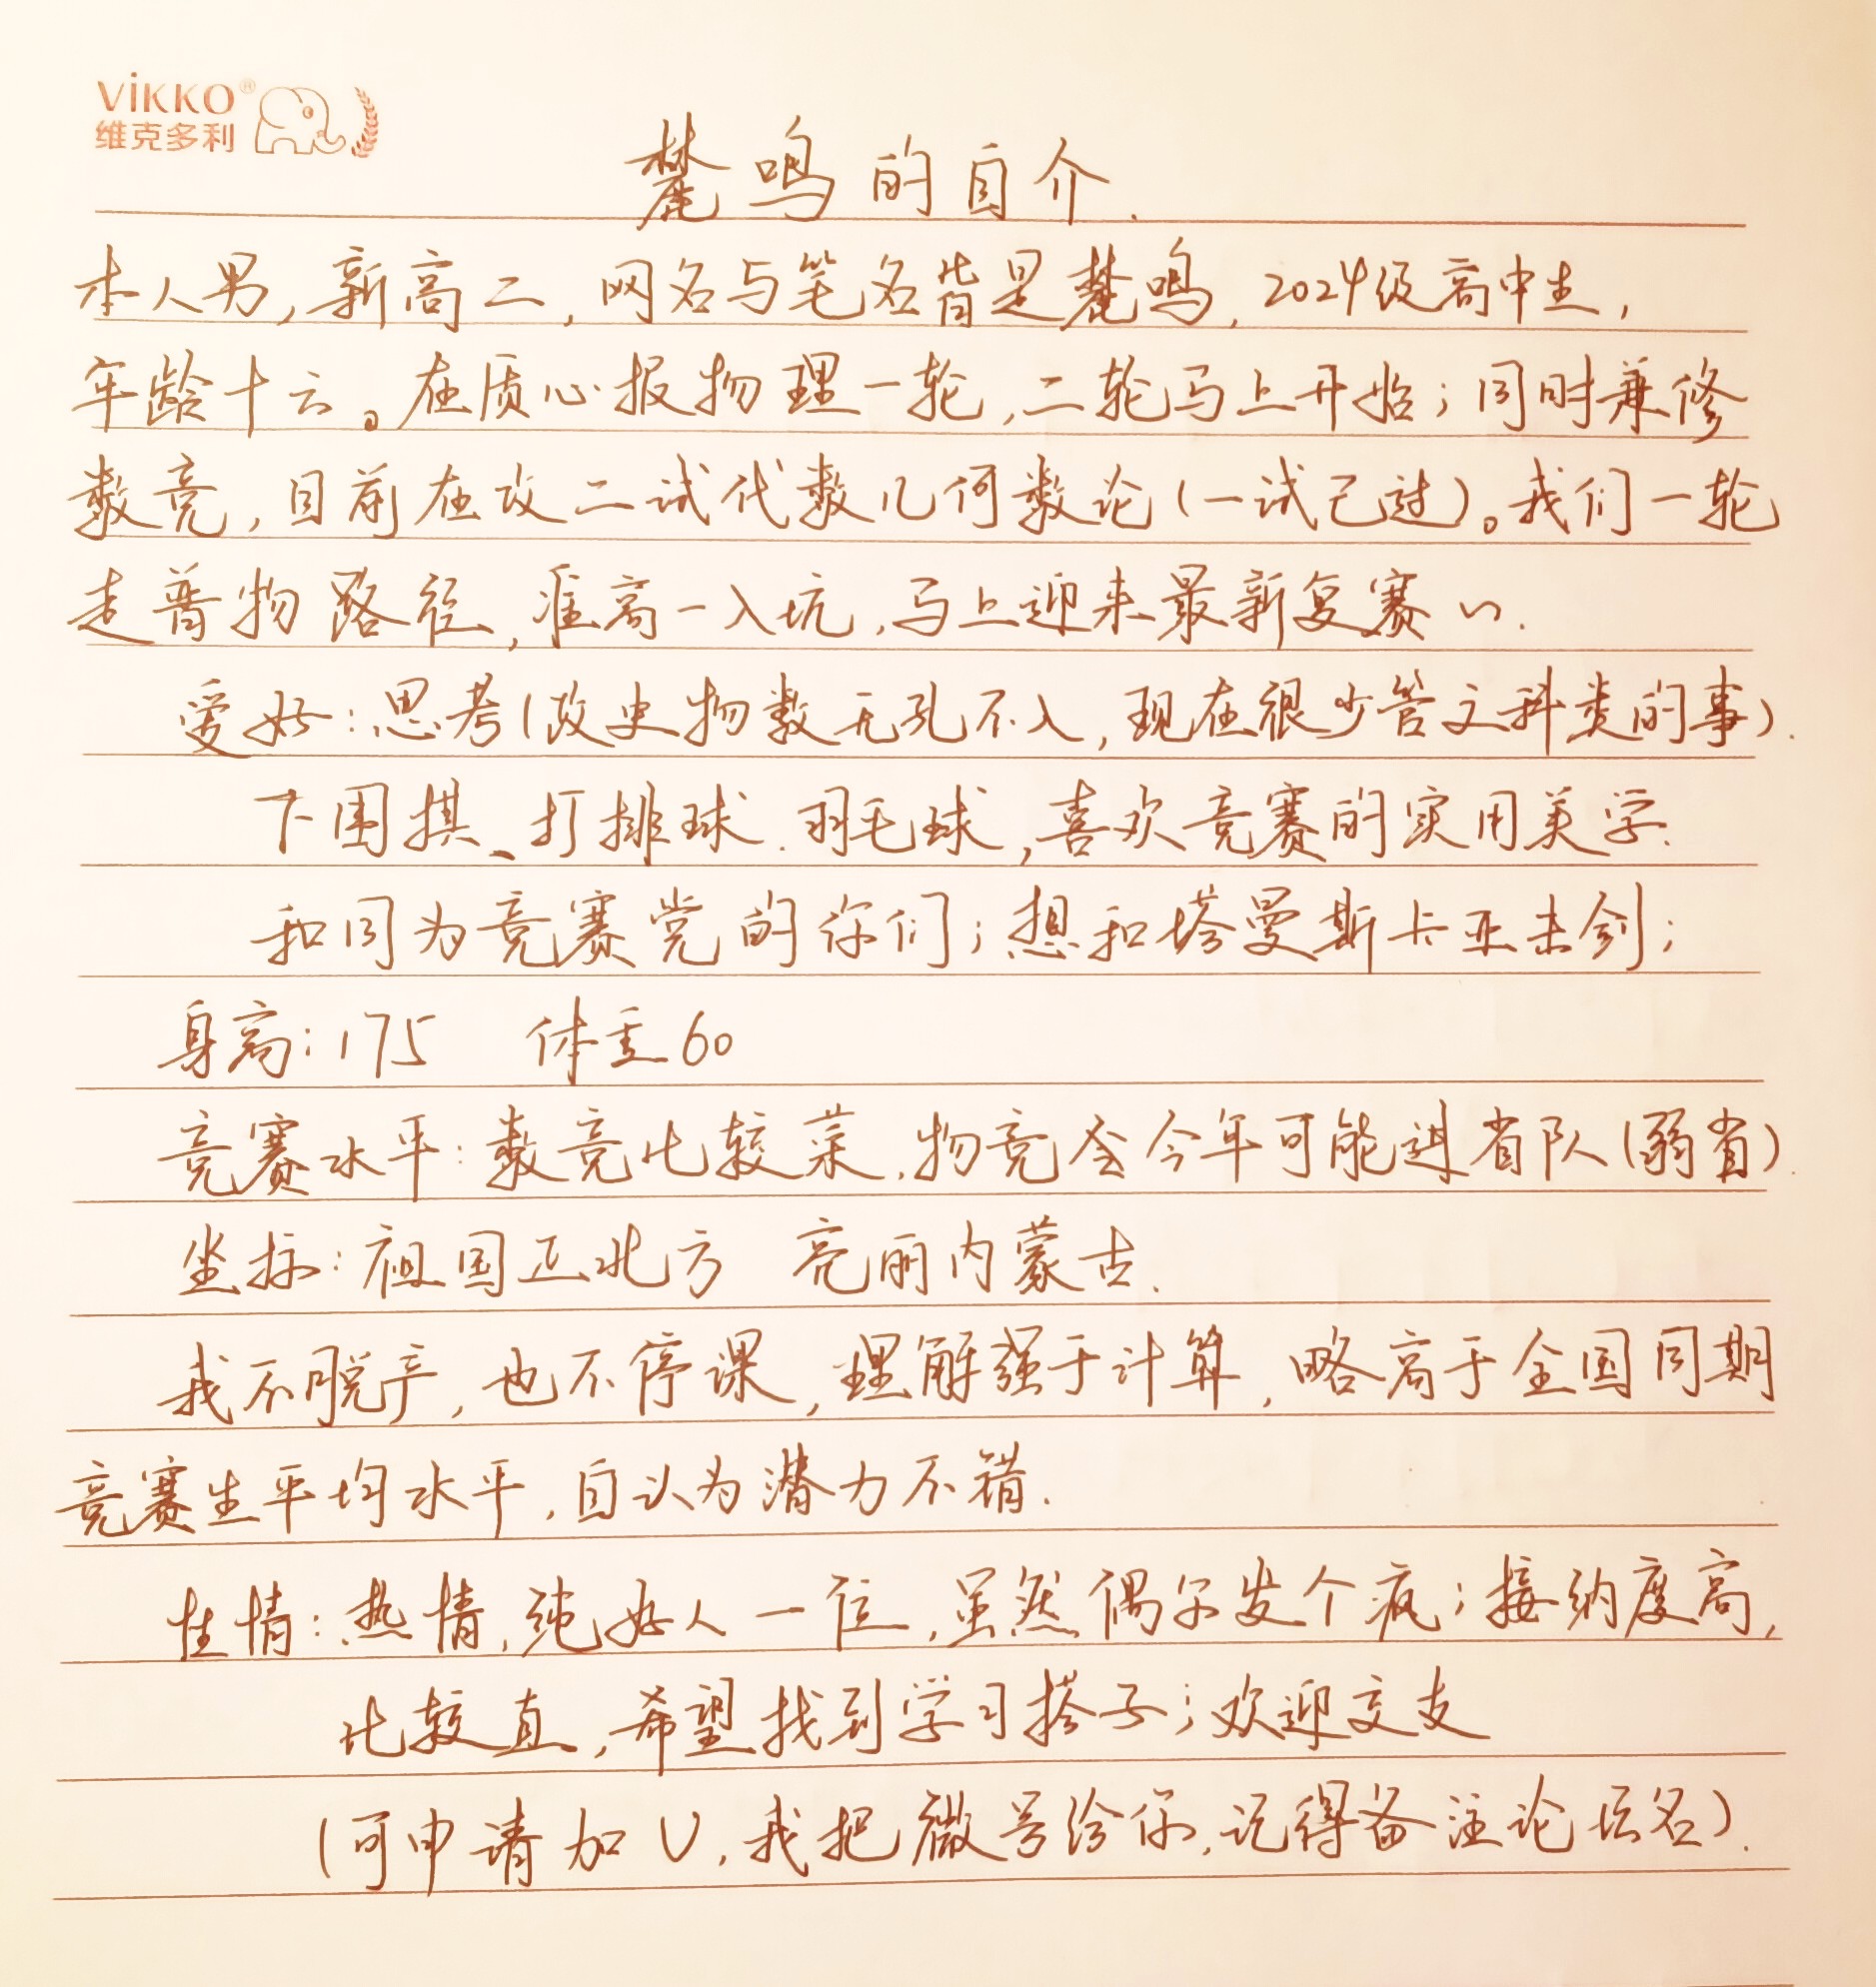 VIKKO®
维克多利
麓鸣的自介.
本人男,新高二,网名与笔名皆是麓鸣,2024级高中生,
年龄十六。在质心报物理一轮,二轮马上开始;同时兼修
数竞,目前在攻二试代数几何数论(一试已过)。我们一轮
走普物路径,准高一入坑,马上迎来最新复赛~.
爱好:思考(政史物数无孔不入,现在很少管文科类的事).
下围棋、打排球.羽毛球,喜欢竞赛的实用美学.
和同为竞赛党的你们;想和塔曼斯卡亚击剑;
身高:175 体重60
竞赛水平:数竞比较菜,物竞会今年可能进省队(弱省).
坐标:祖国正北方 亮丽内蒙古.
我不脱产,也不停课,理解强于计算,略高于全国同期
竞赛生平均水平,自认为潜力不错.
性情:热情,纯好人一位,虽然偶尔发个疯;接纳度高,
比较直,希望找到学习搭子;欢迎交友
(可申请加V,我把微号给你,记得备注论坛名).